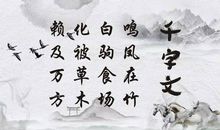 千字文
鸣凤在竹
白驹食场
化被草木
赖及万方